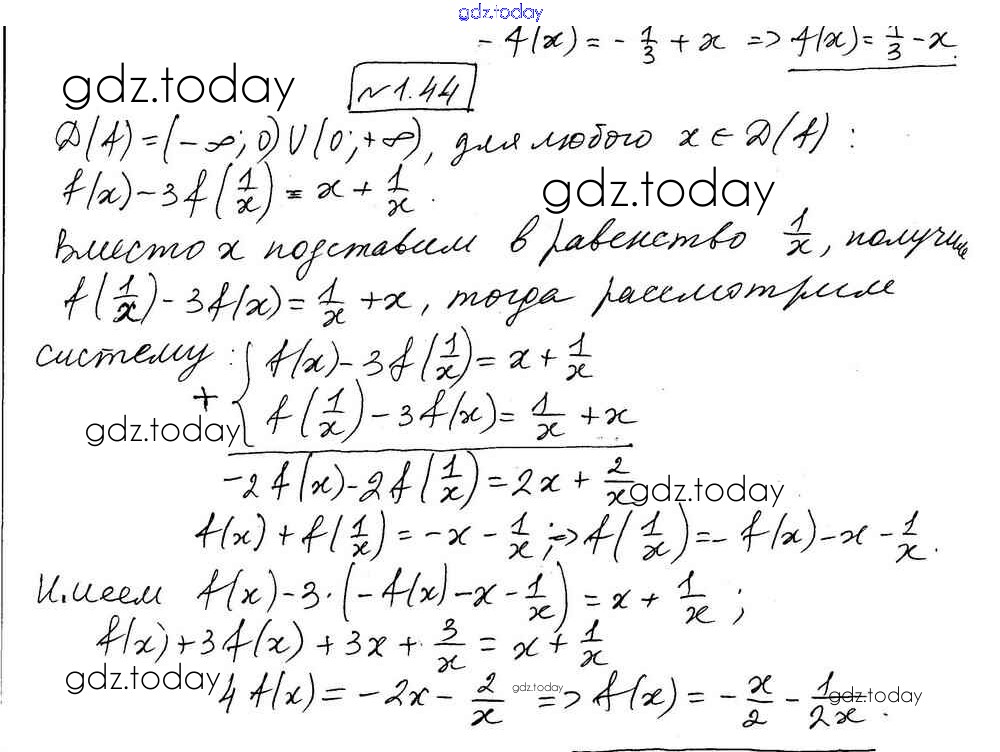 gdz.today
- f(x) = - 1/3 + x => f(x) = 1/3 - x.
gdz.today
№1.44
D(f) = (-∞; 0) U (0; +∞), для любого x ∈ D(f) :
f(x) - 3f(1/x) = x + 1/x.
gdz.today
Вместо x подставим в равенство 1/x, получим
f(1/x) - 3f(x) = 1/x + x, тогда рассмотрим
систему : { f(x) - 3f(1/x) = x + 1/x
+ f(1/x) - 3f(x) = 1/x + x
gdz.today
-2f(x) - 2f(1/x) = 2x + 2/x
gdz.today
f(x) + f(1/x) = -x - 1/x ; => f(1/x) = - f(x) - x - 1/x.
Имеем f(x) - 3·(-f(x) - x - 1/x) = x + 1/x ;
f(x) + 3f(x) + 3x + 3/x = x + 1/x
gdz.today
4f(x) = -2x - 2/x => f(x) = - x/2 - 1/2x.
gdz.today
gdz.today